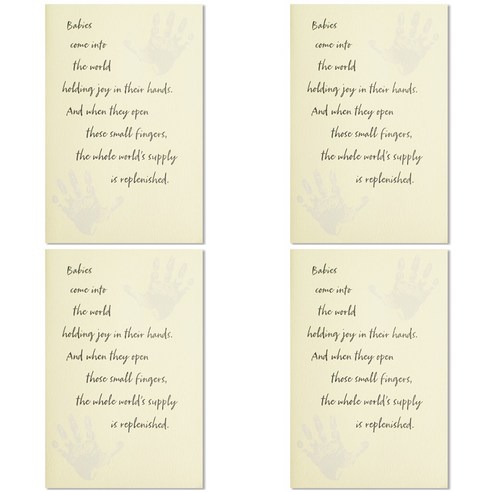 Babies
come into
the world
holding joy in their hands.
And when they open
those small fingers,
the whole world's supply
is replenished.
Babies
come into
the world
holding joy in their hands.
And when they open
those small fingers,
the whole world's supply
is replenished.
Babies
come into
the world
holding joy in their hands.
And when they open
those small fingers,
the whole world's supply
is replenished.
Babies
come into
the world
holding joy in their hands.
And when they open
those small fingers,
the whole world's supply
is replenished.